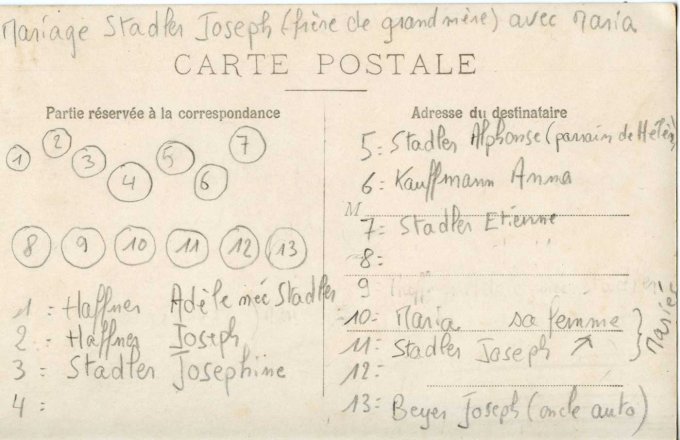 Mariage Stadler Joseph (frère de grand mère) avec Maria
CARTE POSTALE
Partie réservée à la correspondance
Adresse du destinataire
1 2 3 4 5 6 7
8 9 10 11 12 13
1 : Haffner Adèle née Stadler
2 : Haffner Joseph
3 : Stadler Josephine
4 :
5 : Stadler Alphonse (parrain de Hélène)
6 : Kauffmann Anna
M
7 : Stadler Etienne
8 :
9
10 : Maria sa femme
11 : Stadler Joseph ↗
} Mariés
12 :
13 : Beyer Joseph (oncle auto)